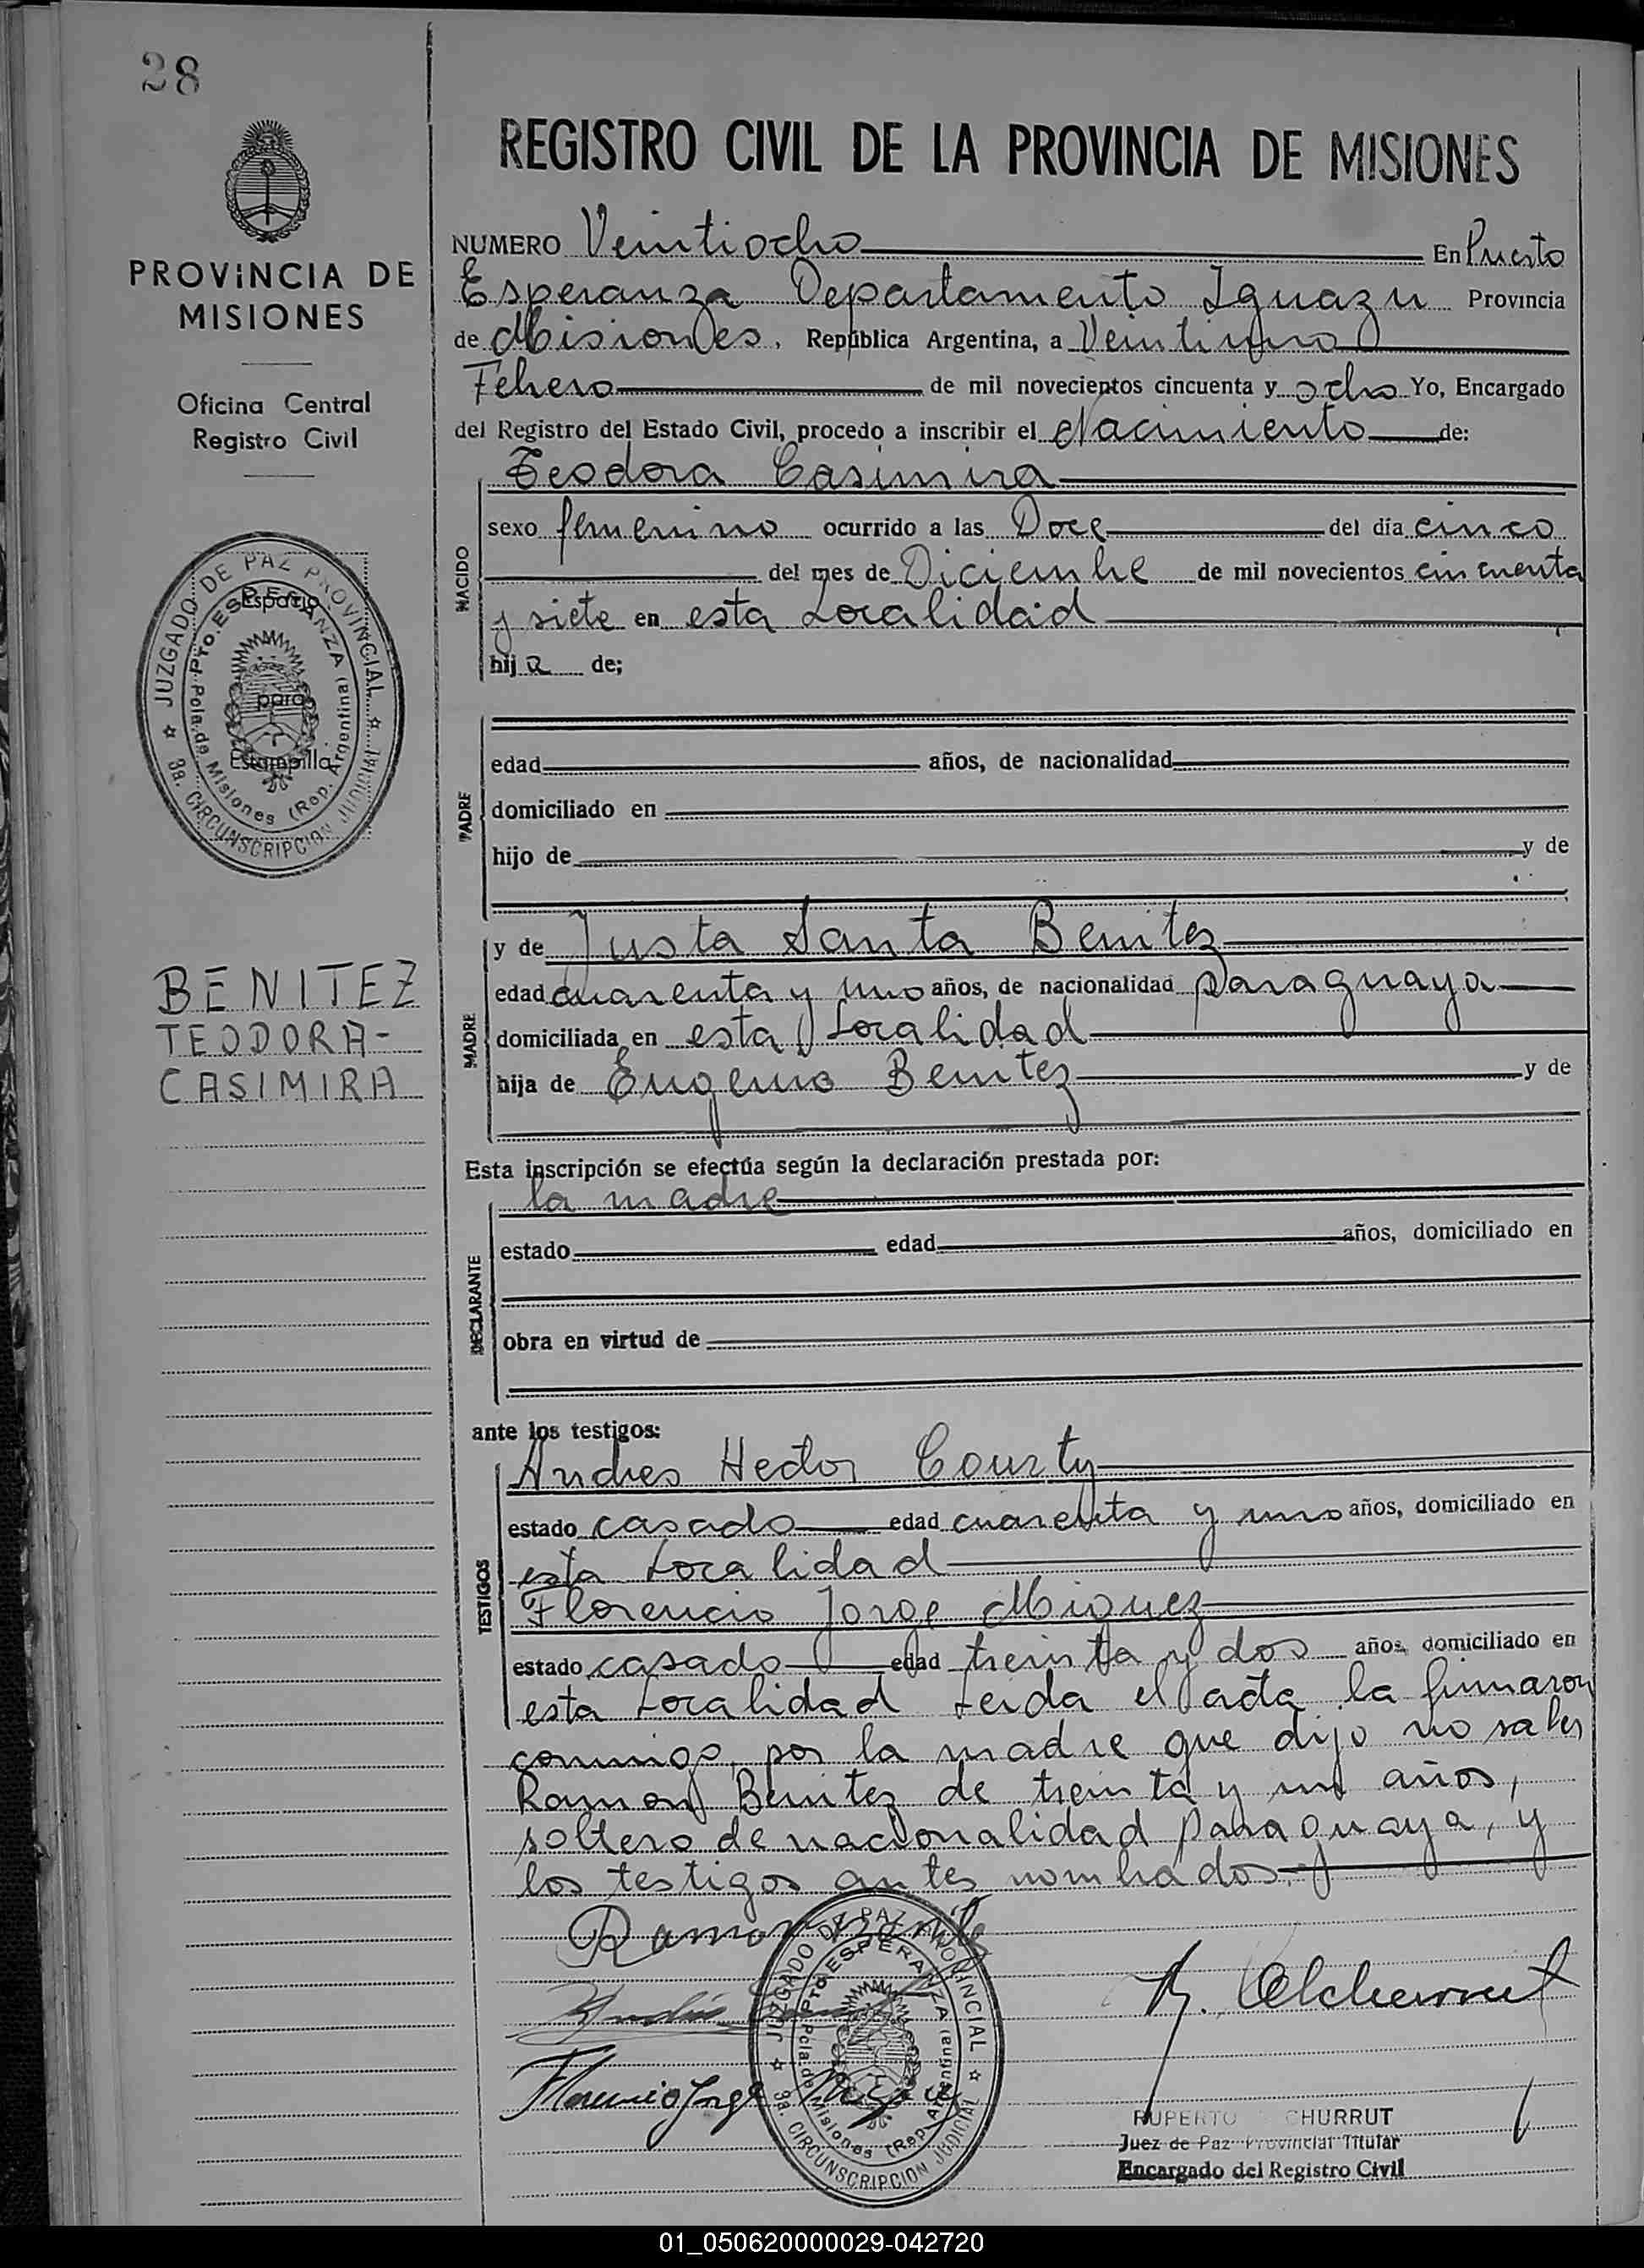 28
REGISTRO CIVIL DE LA PROVINCIA DE MISIONES
PROVINCIA DE
MISIONES
Oficina Central
Registro Civil
JUZGADO DE PAZ PROVINCIAL
Pto. ESPERANZA
Pcia. de Misiones (Rep. Argentina)
3a. CIRCUNSCRIPCION JUDICIAL
Espacio
para
Estampilla
BENITEZ
TEODORA-
CASIMIRA
NUMERO Veintiocho En Puerto
Esperanza Departamento Iguazu Provincia
de Misiones, República Argentina, a Veintiuno
Febero de mil novecientos cincuenta y ocho Yo, Encargado
del Registro del Estado Civil, procedo a inscribir el Nacimiento de:
Teodora Casimira
NACIDO
sexo femenino ocurrido a las Doce del día cinco
del mes de Diciembre de mil novecientos cincuenta
y siete en esta Localidad
hija de;
PADRE
edad años, de nacionalidad
domiciliado en
hijo de y de
MADRE
y de Justa Santa Benitez
edad cuarenta y uno años, de nacionalidad paraguaya
domiciliada en esta Localidad
hija de Eugenio Benitez y de
Esta inscripción se efectúa según la declaración prestada por:
la madre
DECLARANTE
estado edad años, domiciliado en
obra en virtud de
ante los testigos:
TESTIGOS
Andres Hector Courty
estado casado edad cuarenta y uno años, domiciliado en
esta Localidad
Florencio Jorge Miguez
estado casado edad treinta y dos años, domiciliado en
esta Localidad Leida el acta la firmaron
conmigo, por la madre que dijo no saber
Ramon Benitez de treinta y un años,
soltero de nacionalidad paraguaya, y
los testigos antes nombrados.
Ramon Benitez
Florencio Jorge
JUZGADO DE PAZ PROVINCIAL
Pto. ESPERANZA
Pcia. de Misiones (Rep. Argentina)
3a. CIRCUNSCRIPCION JUDICIAL
RUPERTO CHURRUT
Juez de Paz Provincial Titular
Encargado del Registro Civil
01_050620000029-042720